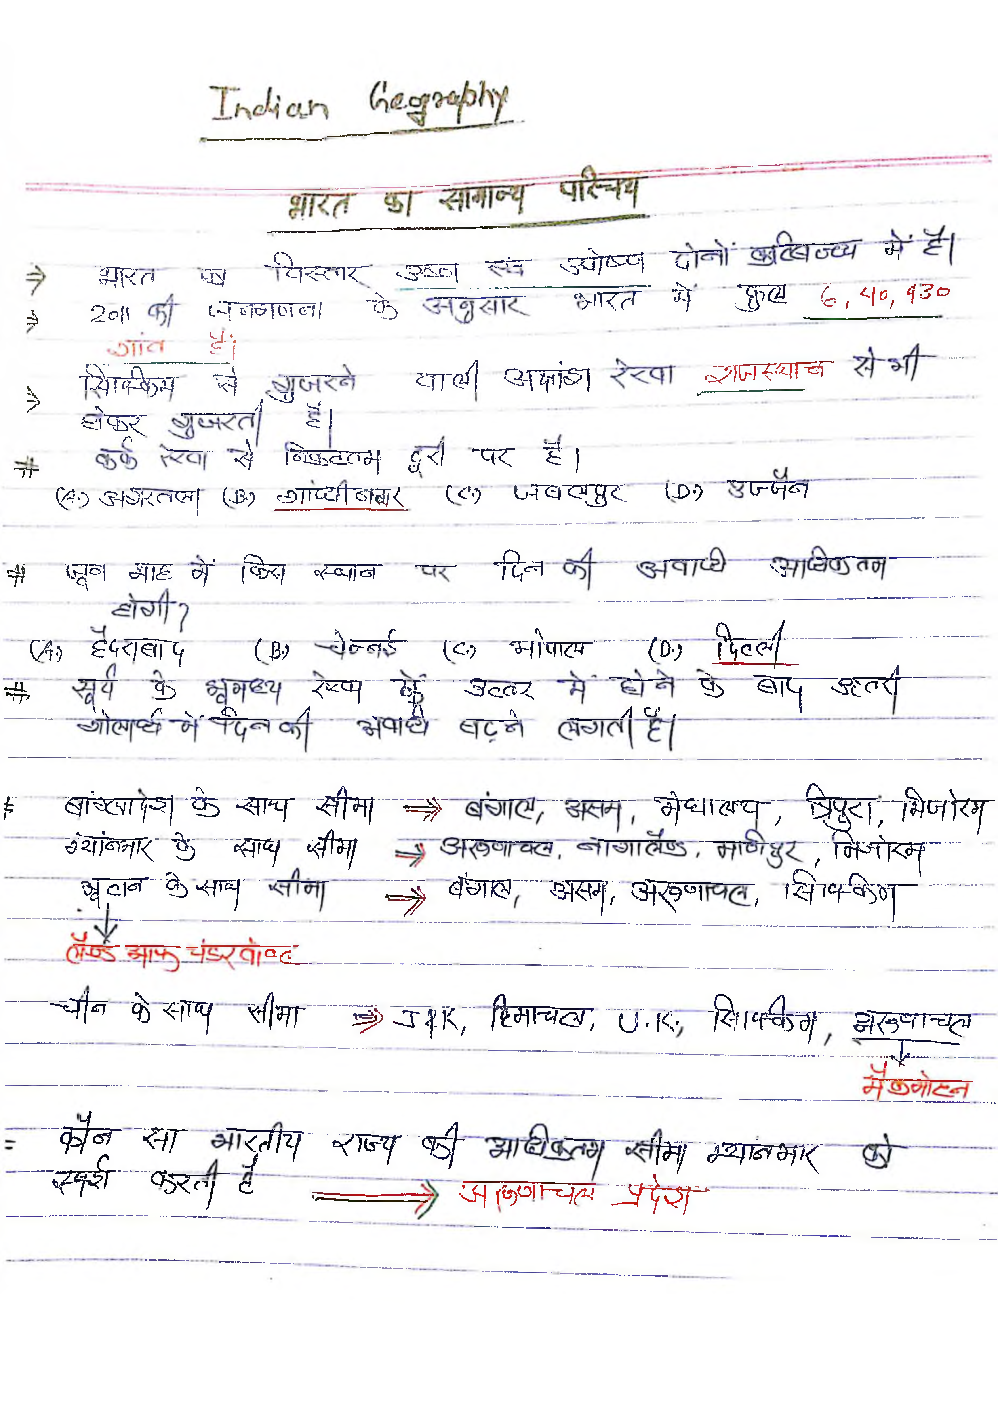 Indian Geography
भारत का सामान्य परिचय
⇒ भारत का विस्तार उष्ण एवं उपोष्ण दोनों कटिबन्ध में है।
⇒ 2011 की जनगणना के अनुसार भारत में कुल 6,40,930
गांव है।
⇒ सिक्किम से गुजरने वाली अक्षांश रेखा राजस्थान से भी
होकर गुजरती है।
# कर्क रेखा से निकटतम दूरी पर है।
(A.) अगरतला (B.) गांधीनगर (C.) जबलपुर (D.) उज्जैन
# जून माह में किस स्थान पर दिन की अवधि अधिकतम
होगी?
(A.) हैदराबाद (B.) चेन्नई (C.) भोपाल (D.) दिल्ली
# सूर्य के भूमध्य रेखा के उत्तर में होने के बाद उत्तरी
गोलार्ध में दिन की अवधि बढ़ने लगती है।
बांग्लादेश के साथ सीमा ⇒ बंगाल, असम, मेघालय, त्रिपुरा, मिजोरम
म्यांनमार के साथ सीमा ⇒ अरूणाचल, नागालैण्ड, मणिपुर, मिजोरम
भूटान के साथ सीमा ⇒ बंगाल, असम, अरूणाचल, सिक्किम
↓
लैण्ड आफ थंडरवोल्ट
चीन के साथ सीमा ⇒ J&K, हिमाचल, U.K., सिक्किम, अरूणाचल
↓
मैकमोहन
= कौन सा भारतीय राज्य की अधिकतम सीमा म्यानमार को
स्पर्श करती है ⇒ अरूणाचल प्रदेश